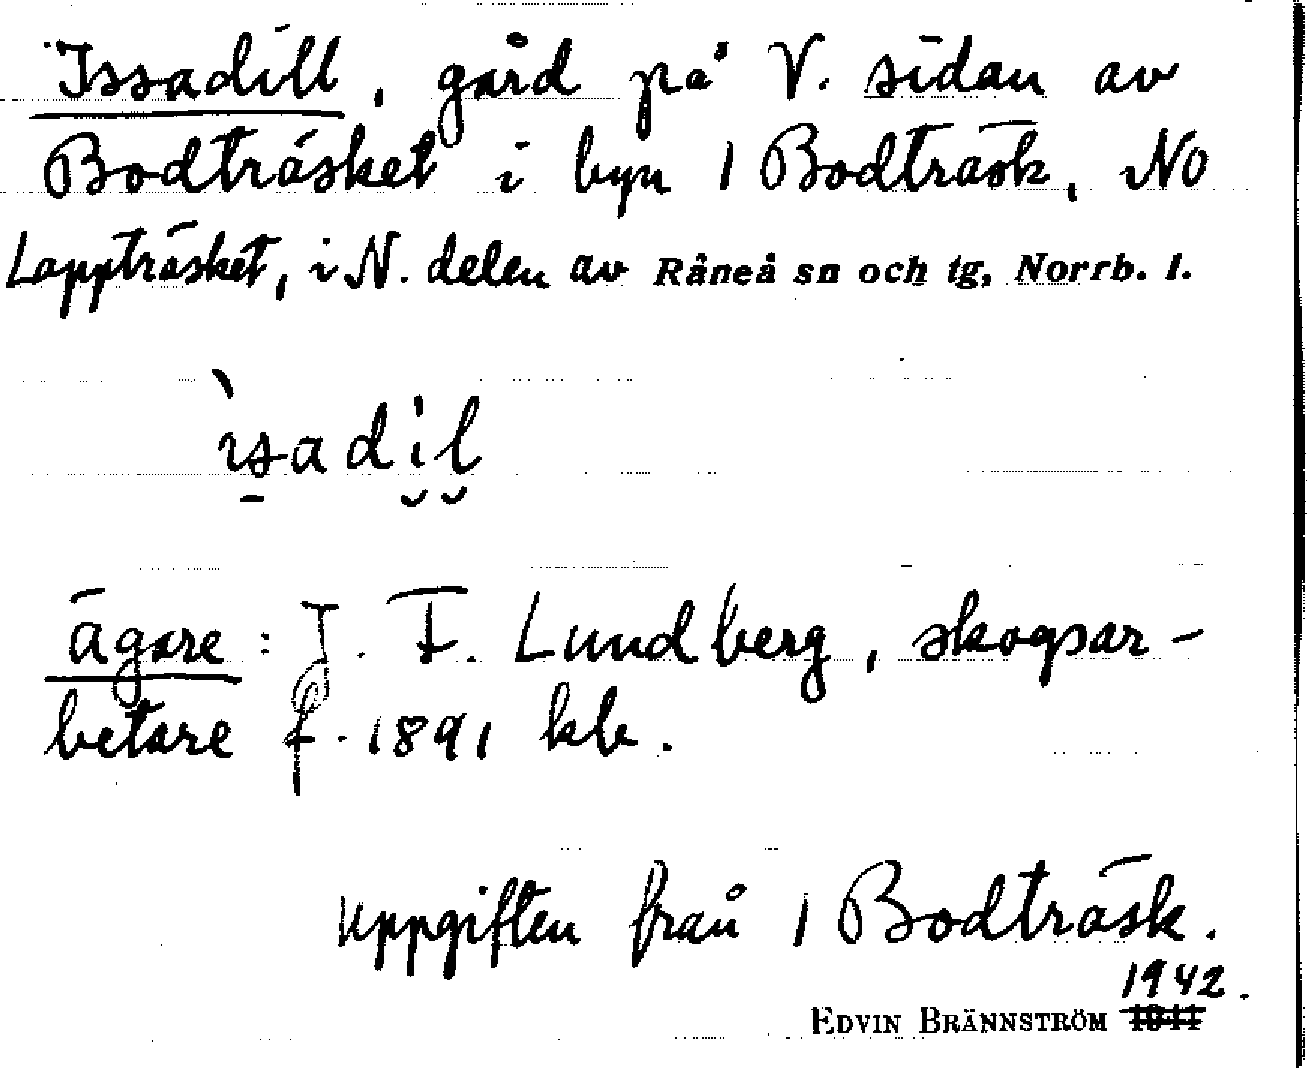 Issadill, gård på V. sidan av
Bodträsket i byn 1 Bodträsk, NO
Lappträsket, i N. delen av Råneå sn och tg, Norrb. l.
ìsadil
ägare: J. F. Lundberg, skogsar-
betare f. 1891 klr.
Uppgiften från 1 Bodträsk.
1942.
EDVIN BRÄNNSTRÖM 1941